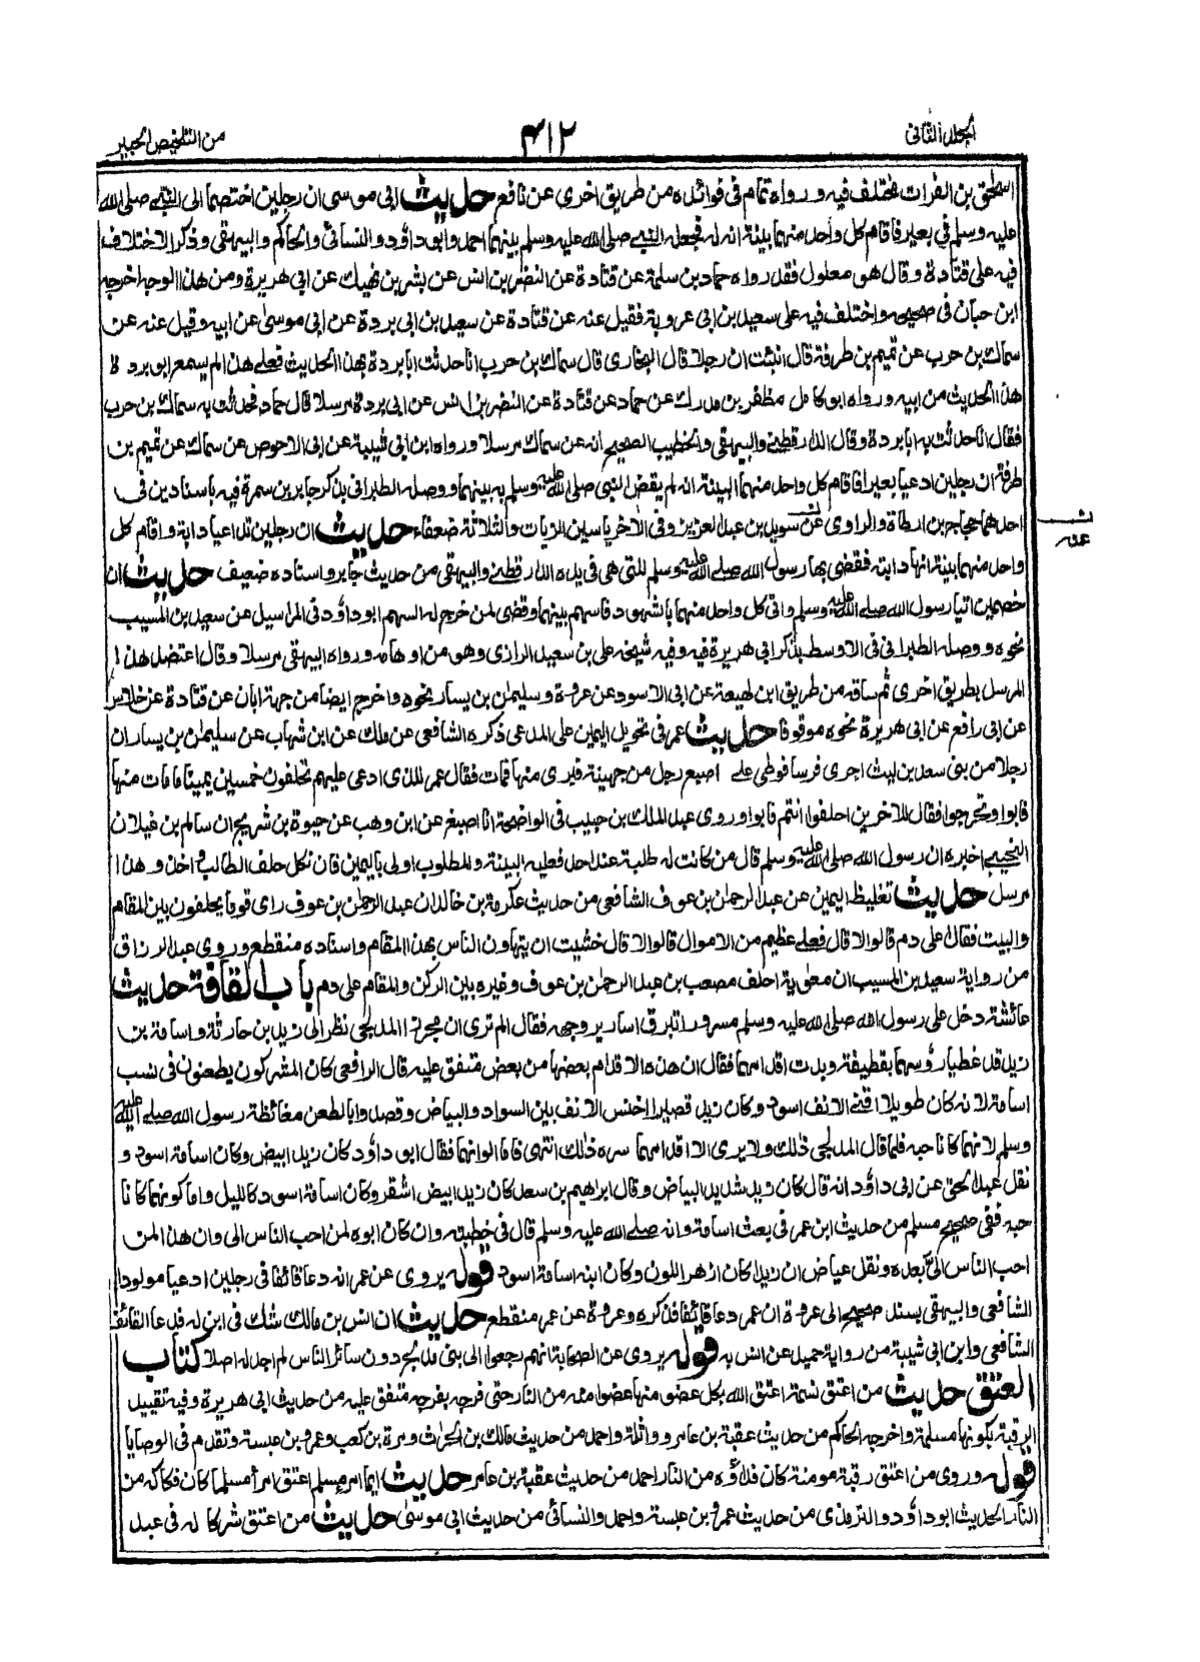 الجلد الثانى
٤١٢
من التلخيص الحبير
اسحٰق بن الفرات مختلف فيه ورواه تمام فى فوائده من طريق اخرى عن نافع حديث ابى موسى ان رجلين اختصما الى النبي صلى الله
عليه وسلم في بعير فاقام كل واحد منهما بينة انه له فجعله النبي صلى الله عليه وسلم بينهما احمد وابو داؤد والنسائى والحاكم والبيهقى وذكر الاختلاف
فيه على قتادة وقال هو معلول فقد رواه حماد بن سلمة عن قتادة عن النضر بن انس عن بشر بن نهيك عن ابى هريرة ومن هذا الوجه اخرجه
ابن حبان فى صحيحه واختلف فيه على سعيد بن ابى عروبة فقيل عنه عن قتادة عن سعيد بن ابى بردة عن ابى موسى عن ابيه وقيل عنه عن
سماك بن حرب عن تميم بن طرفة قال انبئت ان رجلا قال البخارى قال سماك بن حرب انا حدثت ابا بردة بهذا الحديث فعلى هذا لم يسمع ابو بردة
هذا الحديث من ابيه ورواه ابو كامل مظفر بن مدرك عن حماد عن قتادة عن النضر بن انس عن ابى بردة مرسلا قال حماد فحدثت به سماك بن حرب
فقال انا حدثت به ابا بردة وقال الدارقطنى والبيهقى والخطيب الصحيح انه عن سماك مرسلا ورواه ابن ابى شيبة عن ابى الاحوص عن سماك عن تميم بن
طرفة ان رجلين ادعيا بعيرا فاقام كل واحد منهما البينة انه له فقض النبى صلى الله عليه وسلم به بينهما ووصله الطبرانى بذكر جابر بن سمرة فيه باسنادين فى
احدهما حجاج بن ارطاة والراوى عن سويد بن عبد العزيز وفى الاخر ياسين الزيات والثلاثة ضعفاء حديث ان رجلين تداعيا دابة واقام كل
عنه
واحد منهما بينة انها دابته فقضى بها رسول الله صلى الله عليه وسلم للتى هى فى يده الدارقطنى والبيهقى من حديث جابر واسناده ضعيف حديث ان
خصمين اتيا رسول الله صلى الله عليه وسلم واتى كل واحد منهما بالشهود فاسهم بينهما وقضى لمن خرج له السهم ابو داؤد فى المراسيل عن سعيد بن المسيب
نحوه ووصله الطبرانى فى الاوسط بذكر ابى هريرة فيه وفيه شيخه على بن سعيد الرازى وهو من اوهامه ورواه البيهقى مرسلا وقال اعتضد هذا
المرسل بطريق اخرى ثم ساقه من طريق ابن لهيعة عن ابى الاسود عن عروة وسليمٰن بن يسار نحوه واخرج ايضا من جهة ابان عن قتادة عن خلاس
عن ابى رافع عن ابى هريرة نحوه موقوفا حديث عمر فى تحويل اليمين على المدعى ذكره الشافعى عن ملك عن ابن شهاب عن سليمٰن بن يسار ان
رجلا من بنى سعد بن ليث اجرى فرسا فوطى على اصبع رجل من جهينة فنرى منها فمات فقال عمر للذى ادعى عليهم تحلفون خمسين يمينا ما مات منها
فابوا وتحرجوا فقال للاخرين احلفوا انتم فابوا وروى عبد الملك بن حبيب فى الواضحة انا اصبغ عن ابن وهب عن حيوة بن شريح ان سالم بن غيلان
التجيبى اخبره ان رسول الله صلى الله عليه وسلم قال من كانت له طلبة عند احد فعليه البينة والمطلوب اولى باليمين فان نكل حلف الطالب واخذ وهذا
مرسل حديث تغليظ اليمين عن عبد الرحمٰن بن عوف الشافعى من حديث عكرمة بن خالد ان عبد الرحمٰن بن عوف راى قوما يحلفون بين المقام
والبيت فقال على دم قالوا لا قال فعلى عظيم من الاموال قالوا لا قال خشيت ان يتهاون الناس بهذا المقام واسناده منقطع وروى عبد الرزاق
من رواية سعيد بن المسيب ان معٰوية احلف مصعب بن عبد الرحمٰن بن عوف وغيره بين الركن والمقام على دم باب القافة حديث
عائشة دخل على رسول الله صلى الله عليه وسلم مسرورا تبرق اسارير وجهه فقال الم ترى ان مجززا المدلجى نظر الى زيد بن حارثة واسامة بن
زيد قد غطيا رؤسهما بقطيفة وبدت اقدامهما فقال ان هذه الاقدام بعضها من بعض متفق عليه قال الرافعى كان المشركون يطعنون فى نسب
اسامة لانه كان طويلا اقنى الانف اسود وكان زيد قصيرا اخنس الانف بين السواد والبياض وقصدوا بالطعن مغائظة رسول الله صلى الله عليه
وسلم لانهما كانا حبه فلما قال المدلجى ذٰلك ولا يرى الا اقدامهما سره ذٰلك انتهى فاما الوانهما فقال ابو داؤد كان زيد ابيض وكان اسامة اسود و
نقل عبد الحق عن ابى داؤد انه قال كان زيد شديد البياض وقال ابراهيم بن سعد كان زيد ابيض اشقر وكان اسامة اسود كالليل واما كونهما كانا
حبه ففى صحيح مسلم من حديث ابن عمر فى بعث اسامة وانه صلى الله عليه وسلم قال فى خطبته وان كان ابوه لمن احب الناس الى وان هذا لمن
احب الناس الى بعده ونقل عياض ان زيدا كان ازهر اللون وكان ابنه اسامة اسود قوله يروى عن عمر انه دعا قائفا فى رجلين ادعيا مولودا
الشافعى والبيهقى بسند صحيح الى عروة ان عمر دعا قائفا فذكره وعروة عن عمر منقطع حديث ان انس بن مالك شك فى ابن له فدعا القائف
الشافعى وابن ابى شيبة من رواية حميد عن انس به قوله يروى عن الصحابة انهم رجعوا الى بنى مدلج دون سائر الناس لم اجد له اصلا كتاب
العتق حديث من اعتق نسمة اعتق الله بكل عضو منها عضوا منه من النار حتى فرجه بفرجه متفق عليه من حديث ابى هريرة وفيه تقييد
الرقبة بكونها مسلمة واخرجه الحاكم من حديث عقبة بن عامر وواثلة واحمد من حديث مالك بن الحٰرث ومرة بن كعب وعمرو بن عبسة وتقدم فى الوصايا
قوله وروى من اعتق رقبة مومنة كان فداؤه من النار احمد من حديث عقبة بن عامر حديث ايما امرء مسلم اعتق امرأ مسلما كان فكاكه من
النار الحديث ابو داؤد والترمذى من حديث عمرو بن عبسة واحمد والنسائى من حديث ابى موسىٰ حديث من اعتق شركا له فى عبد